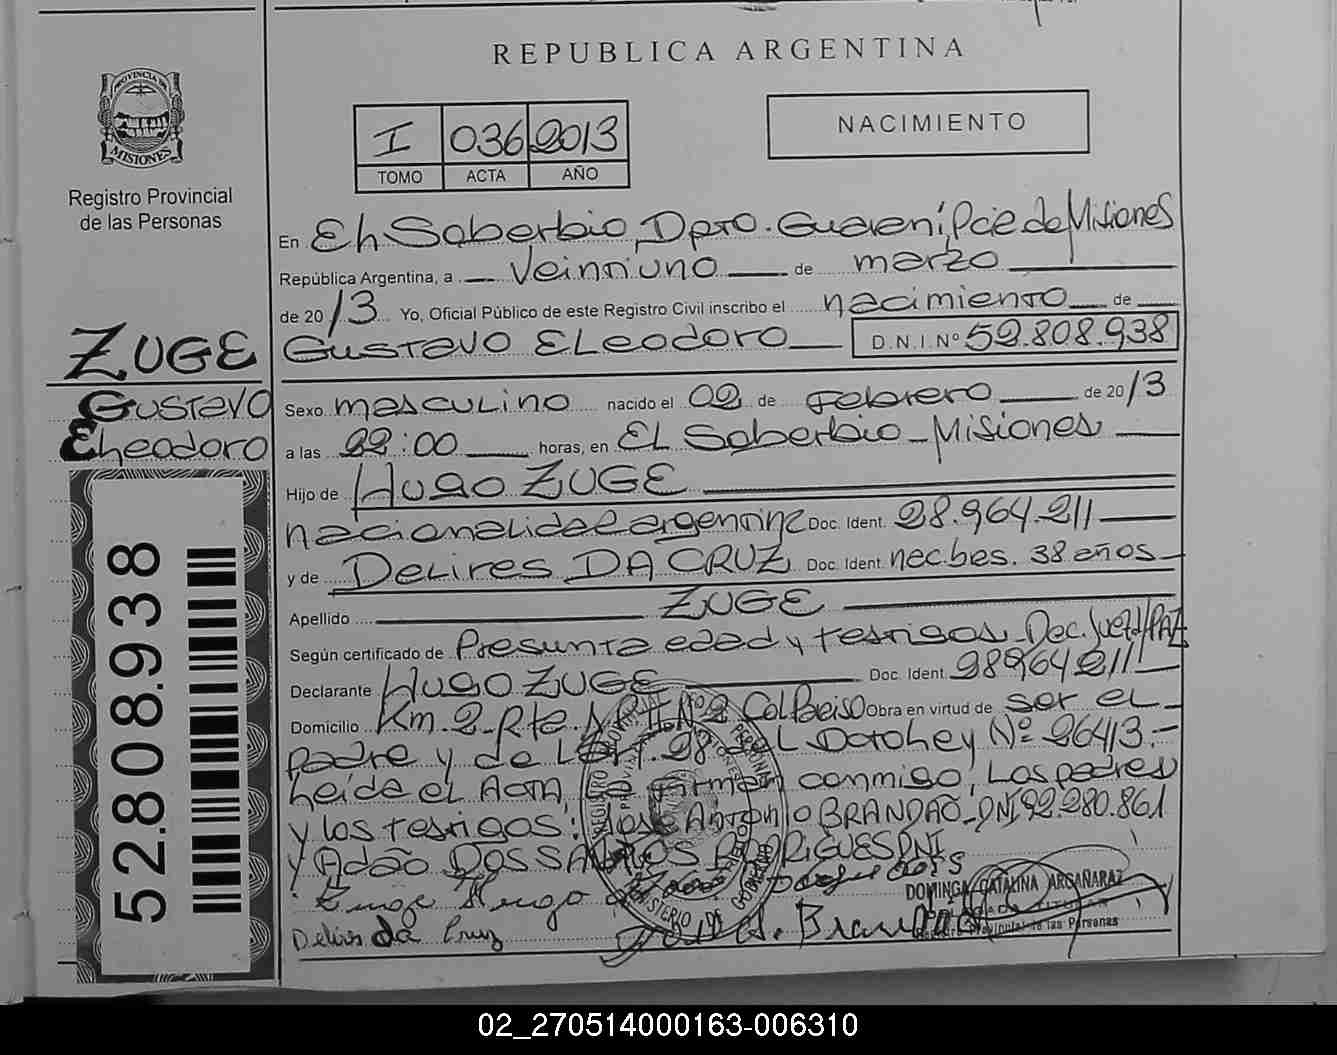 REPUBLICA ARGENTINA
PROVINCIA DE
MISIONES
Registro Provincial
de las Personas
I 036 2013
TOMO ACTA AÑO
NACIMIENTO
ZUGE
Gustavo
Eleodoro
52.808.938
En El Soberbio, Dpto. Guaraní, Pcie de Misiones
República Argentina, a Veintiuno de marzo
de 20 13 Yo, Oficial Público de este Registro Civil inscribo el nacimiento de
Gustavo Eleodoro D.N.I. Nº 52.808.938
Sexo masculino nacido el 02 de Febrero de 20 13
a las 22:00 horas, en El Soberbio - Misiones
Hijo de Hugo ZUGE
nacionalidad argentina Doc. Ident. 28.964.211
y de Delires DA CRUZ Doc. Ident. nac. bras. 38 años
Apellido ZUGE
Según certificado de Presunta edad y testigos Dec. Juez d/PAZ
Declarante Hugo ZUGE Doc. Ident. 28964211
Domicilio Km. 2 Rta Nº 2 Col Paraiso Obra en virtud de ser el
padre y de L Art. 28 de L Nº 26413.-
Leída el Acta, la firman conmigo, Los padres
y los testigos: Jose Antonio BRANDAO - DNI 92.280.861
y Adão DOS SANTOS RODRIGUES DNI
Zuge Hugo
Delires da Cruz
José A. Brandao
DOMINGA CATALINA ARGAÑARAZ
Registro Provincial de las Personas
02_270514000163-006310